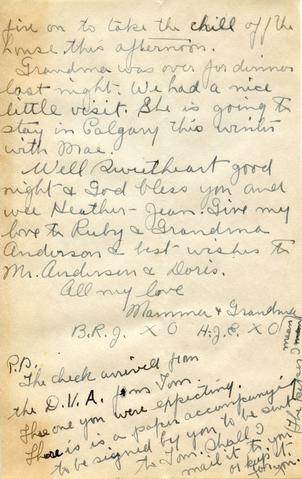 fire on to take the chill off the
house this afternoon.
Grandma was over for dinner
last night. We had a nice
little visit. She is going to
stay in Calgary this winter
with Mae.
Well Sweetheart good
night & God bless you and
wee Heather-Jean. Give my
love to Ruby & Grandma
Anderson & best wishes to
Mr. Anderson & Doris.
All my love
Mammer & Grandma
B.R.J. X O H.J.C. X O
P.S.
The check arrived from
the D.V.A. from Tom.
The one you were expecting.
There is is a paper accompanying
to be signed by you to be sent
to Tom. Shall I
mail it to you
or keep it
for you.
mean